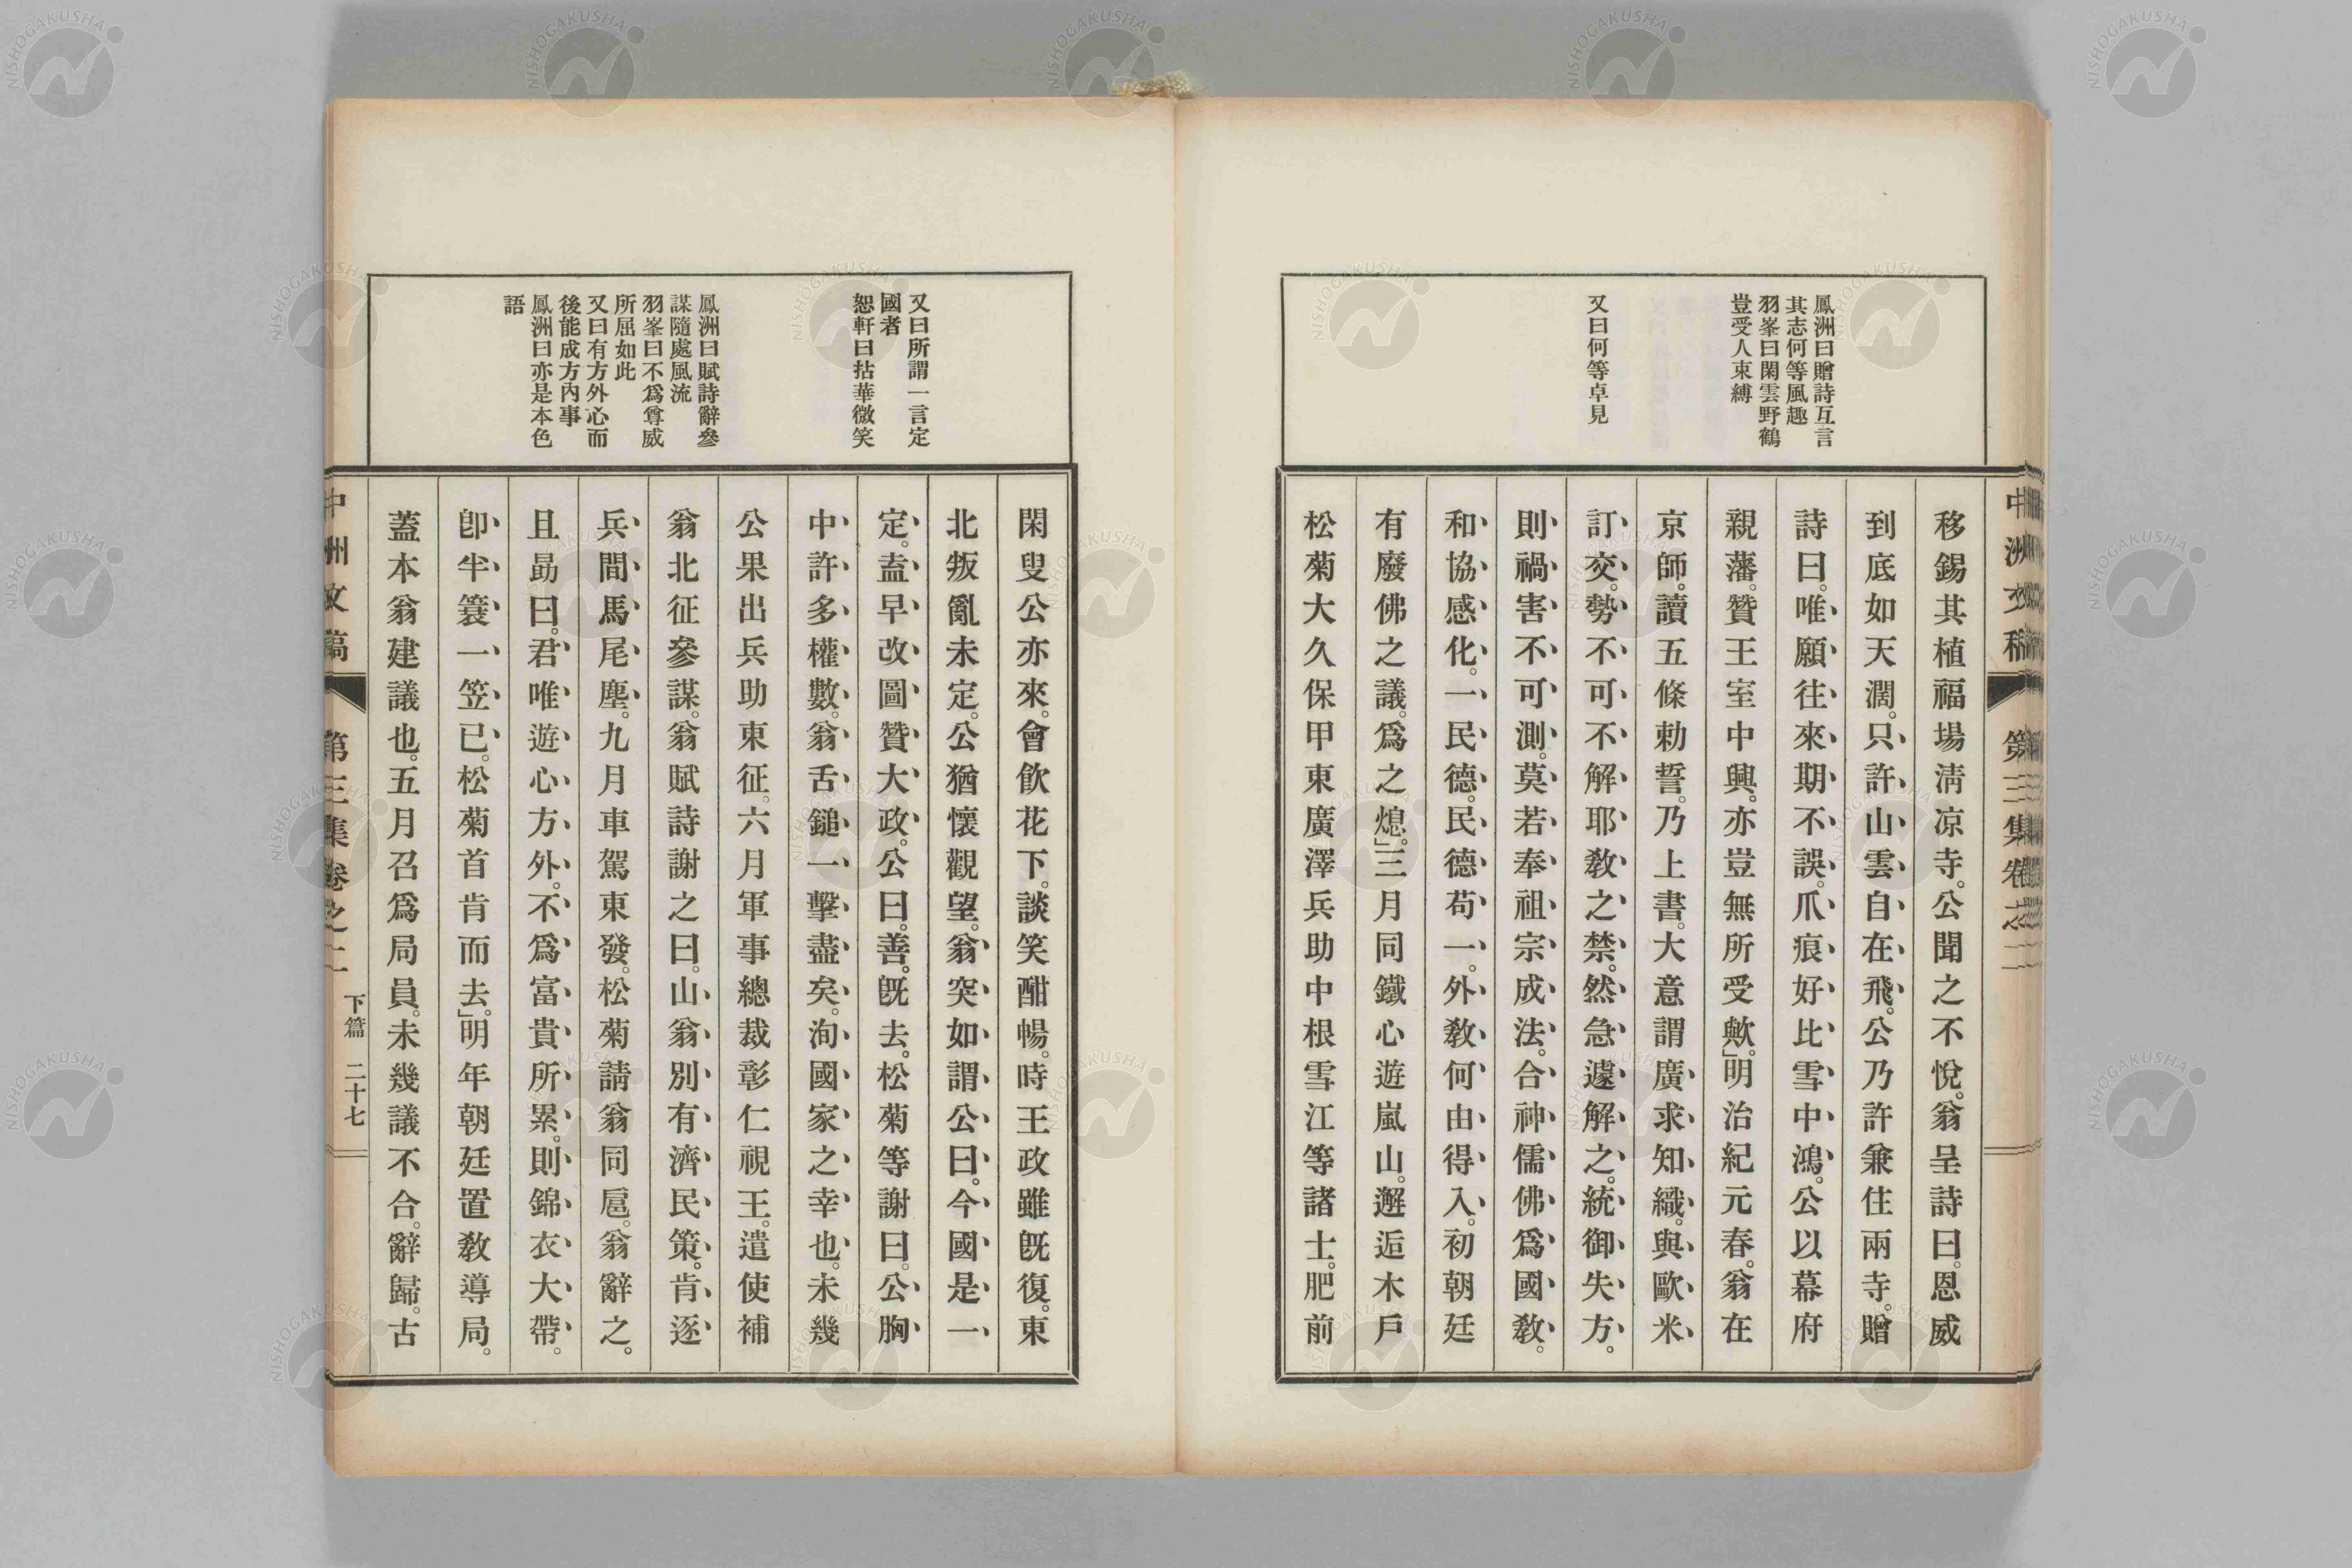 鳳洲曰贈詩互言
其志何等風趣
羽峯曰閑雲野鶴
豈受人束縛
又曰何等卓見
移錫其植福場淸凉寺。公聞之不悅。翁呈詩曰。恩威
到底如天濶。只許山雲自在飛。公乃許兼住兩寺。贈
詩曰。唯願往來期不誤。爪痕好比雪中鴻。公以幕府
親藩。贊王室中興。亦豈無所受歟。」明治紀元春。翁在
京師。讀五條勅誓。乃上書。大意謂廣求知織。與歐米
訂交。勢不可不解耶敎之禁。然急遽解之。統御失方。
則禍害不可測。莫若奉祖宗成法。合神儒佛爲國敎。
和協感化。一民德。民德苟一。外敎何由得入。初朝廷
有廢佛之議。爲之熄。」三月同鐵心遊嵐山。邂逅木戶
松菊大久保甲東廣澤兵助中根雪江等諸士。肥前
中洲文稿
第三集卷之二
又曰所謂一言定
國者
恕軒曰拈華微笑
鳳洲曰賦詩辭參
謀隨處風流
羽峯曰不爲尊威
所屈如此
又曰有方外心而
後能成方內事
鳳洲曰亦是本色
語
閑叟公亦來。會飮花下。談笑酣暢。時王政雖旣復。東
北叛亂未定。公猶懷觀望。翁突如謂公曰。今國是一
定。盍早改圖贊大政。公曰。善。旣去。松菊等謝曰。公胸
中許多權數。翁舌鎚一擊盡矣。洵國家之幸也。未幾
公果出兵助東征。六月軍事總裁彰仁視王。遣使補
翁北征參謀。翁賦詩謝之曰。山翁別有濟民策。肯逐
兵間馬尾塵。九月車駕東發。松菊請翁同扈。翁辭之。
且勗曰。君唯遊心方外。不爲富貴所累。則錦衣大帶。
卽半簑一笠已。松菊首肯而去。」明年朝廷置敎導局。
蓋本翁建議也。五月召爲局員。未幾議不合。辭歸。古
中洲文稿
第三集卷之二
下篇
二十七